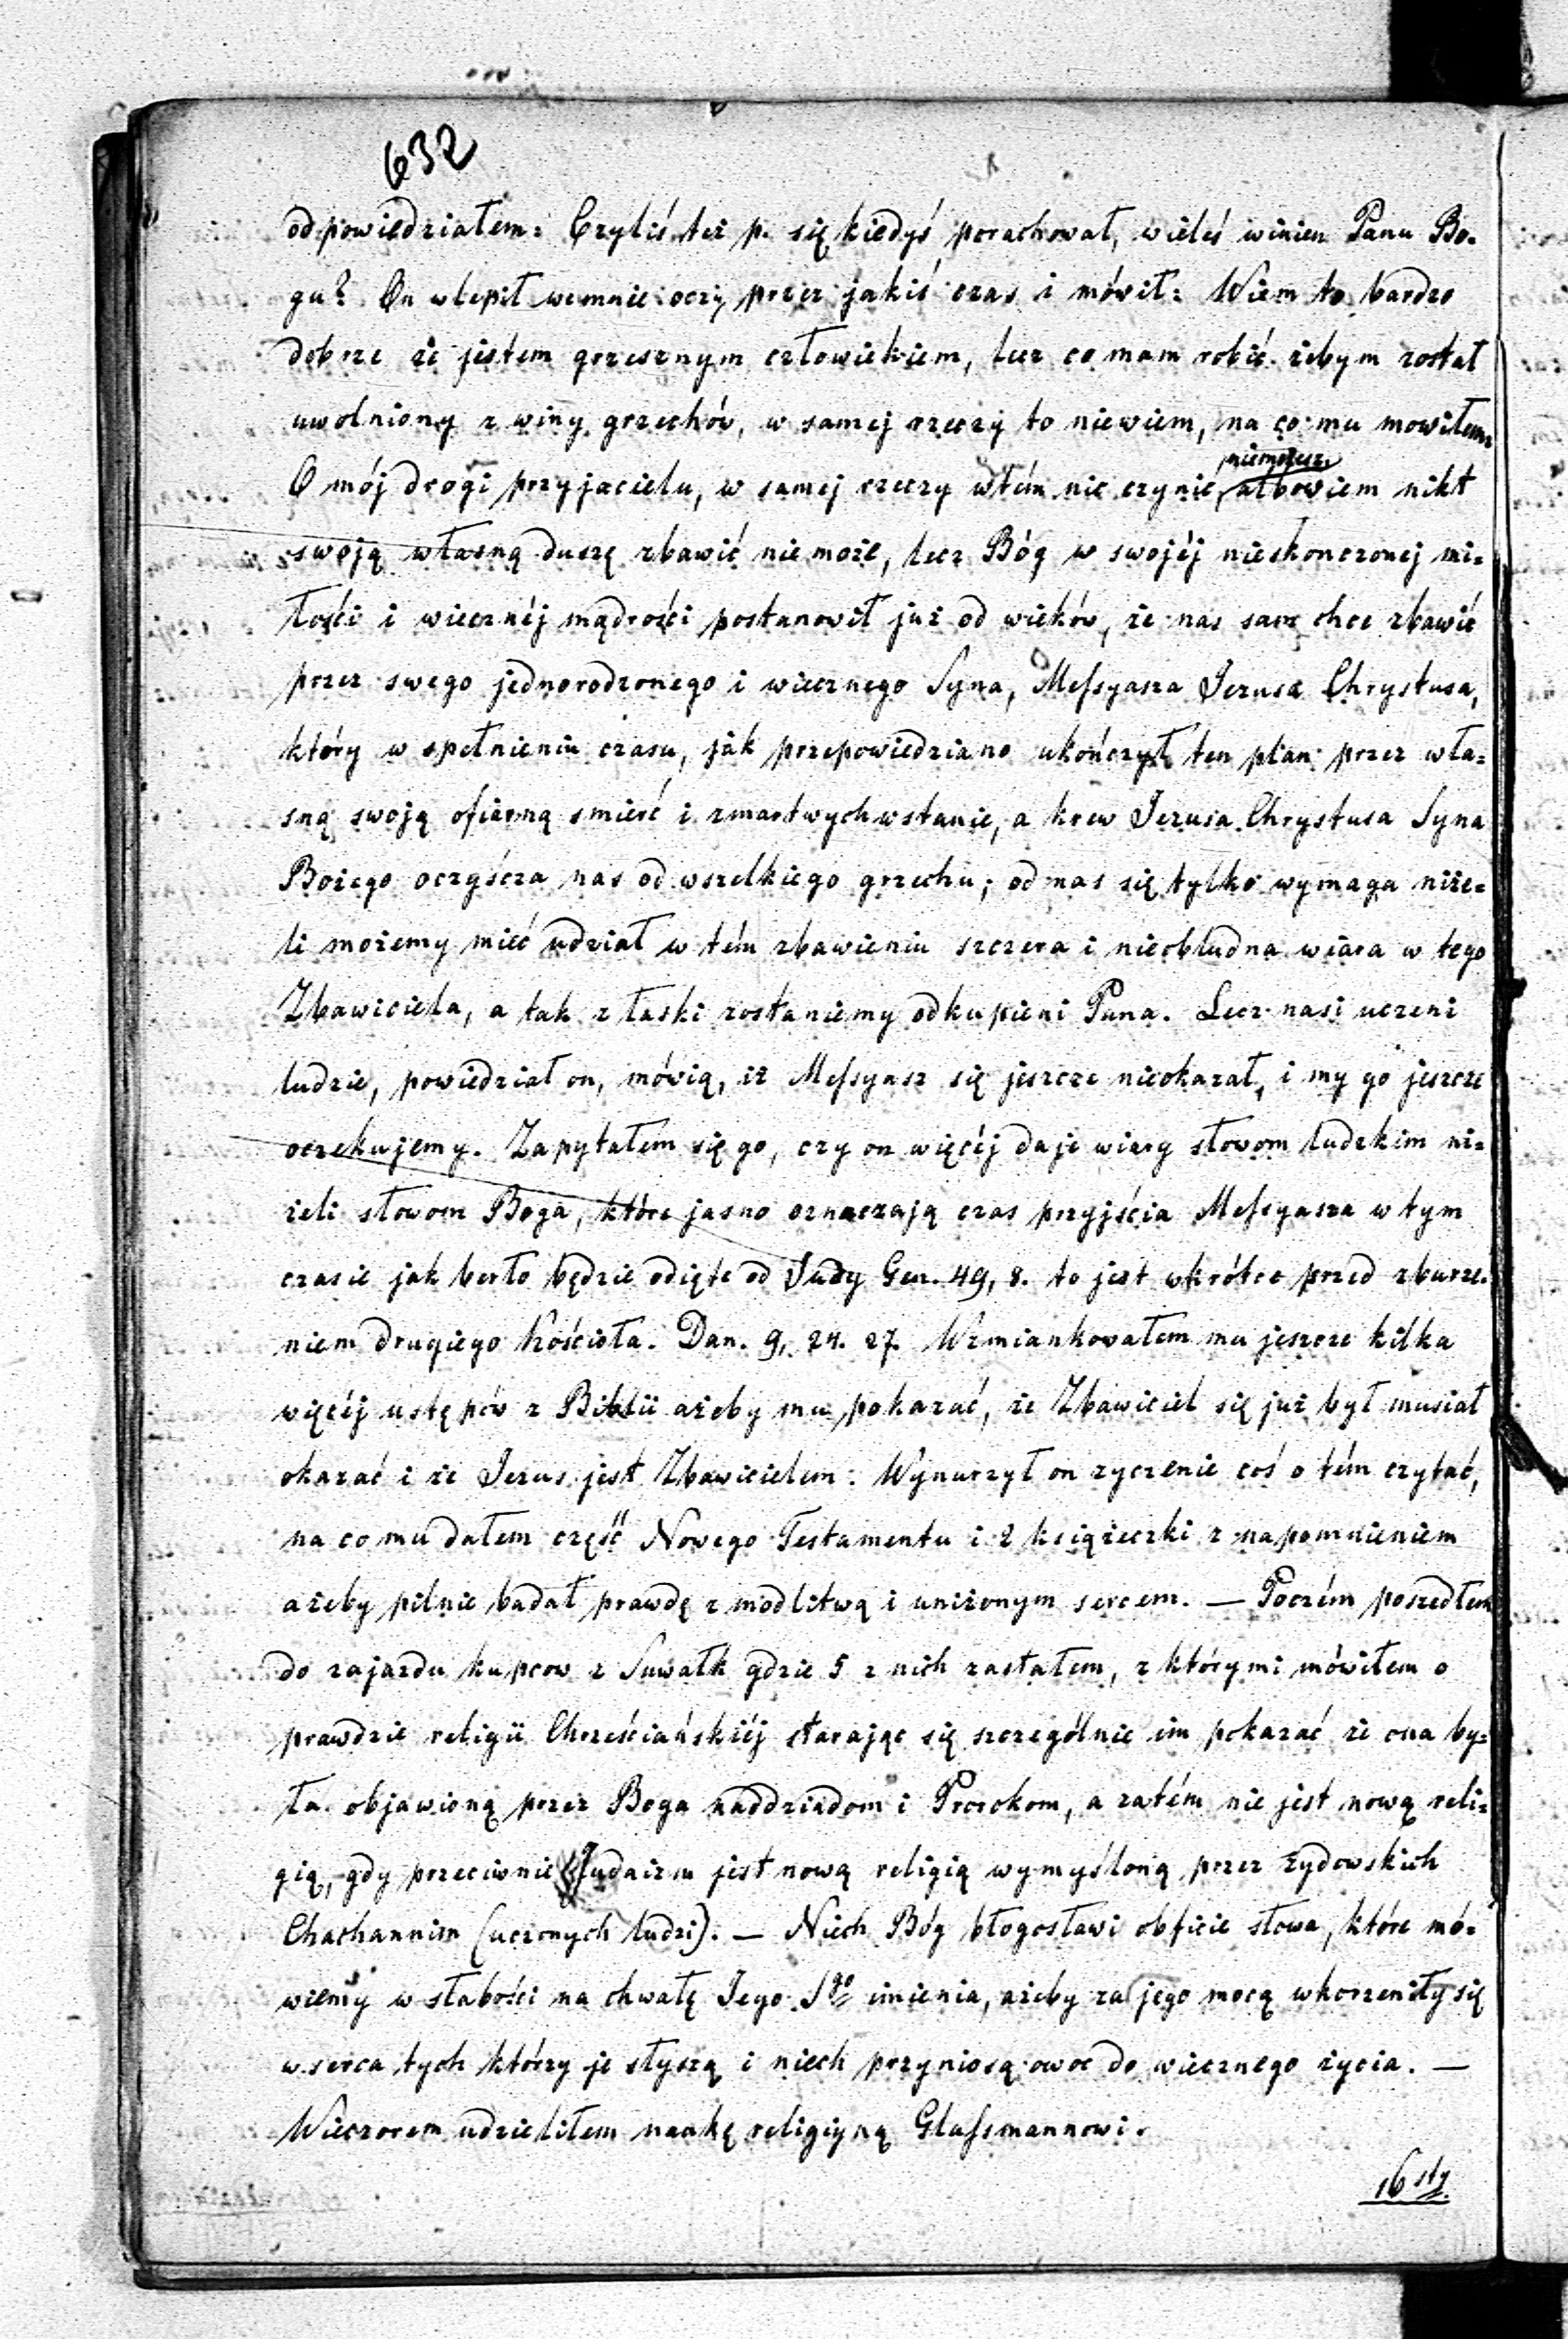 632
odpowiedziałem: Czyliś też p. się kiedyś porachował, wieleś winien Panu Bo-
gu? On wlepił wemnie oczy przez jakiś czas i mówił: Wiem to bardzo
dobrze że jestem grzesznym człowiekiem, lecz co mam robić żebym został
uwolniony z winy grzechów, w samej rzeczy to niewiem, na co mu mowiłem:
niemożesz
O mój drogi przyjacielu, w samej rzeczy wtém nic czynić, albowiem nikt
swoją własną duszę zbawić nie może, lecz Bóg w swojéj nieskonczonej mi-
łości i wiecznéj mądrości postanowił już od wieków, że nas sam chce zbawić
przez swego jednorodzonego i wiecznego Syna, Messyasza Jezusa Chrystusa,
który w spełnieniu czasu, jak przepowiedziano ukończył ten plan przez wła-
sną swoją ofiarną smierć i zmartwychwstanie, a krew Jezusa Chrystusa Syna
Bożego oczyścza nas od wszelkiego grzechu; od nas się tylko wymaga niże-
li możemy mieć udział w tém zbawieniu szczera i nieobłudna wiara w tego
Zbawiciela, a tak z łaski zostaniemy odkupieni Pana. Lecz nasi uczeni
ludzie, powiedział on, mówią, iż Messyasz się jeszcze nieokazał, i my go jeszcze
oczekujemy. Zapytałem się go, czy on więcéj daje wiary słowom ludzkim ni-
żeli słowom Boga, które jasno oznaczają czas przyjścia Messyasza w tym
czasie jak berło będzie odięte od Judy Gen. 49, 8. to jest wkrótce przed zburze-
niem drugiego Kościoła. Dan. 9, 24. 27. Wzmiankowałem mu jeszcze kilka
więcéj ustępów z Biblii ażeby mu pokazać, że Zbawiciel się już był musiał
okazać i że Jezus jest Zbawicielem. Wynurzył on zyczenie coś o tém czytać,
na co mu dałem część Nowego Testamentu i 2 książeczki z napomnieniem
ażeby pilnie badał prawdę z modlitwą i uniżonym sercem. — Poczém poszedłem
do zajazdu kupcow z Suwałk gdzie 5 z nich zastałem, z którymi mówiłem o
prawdzie religii Chrześciańskiéj starając się szczególnie im pokazać że ona by-
ła objawioną przez Boga naddziadom i Prorokom, a zatém nie jest nową reli-
gią, gdy przeciwnie Judaizm jest nową religią wymyśloną przez żydowskich
Chachannim (uczonych ludzi). — Niech Bóg błogosławi obficie słowa, które mó-
wiemy w słabości na chwałę Jego Sgo imienia, ażeby za jego mocą wkorzeniły się
w serca tych którzy je słyszą i niech przyniosą owoc do wiecznego życia. —
Wieczorem udzieliłem naukę religiyną Glassmannowi.
16sty